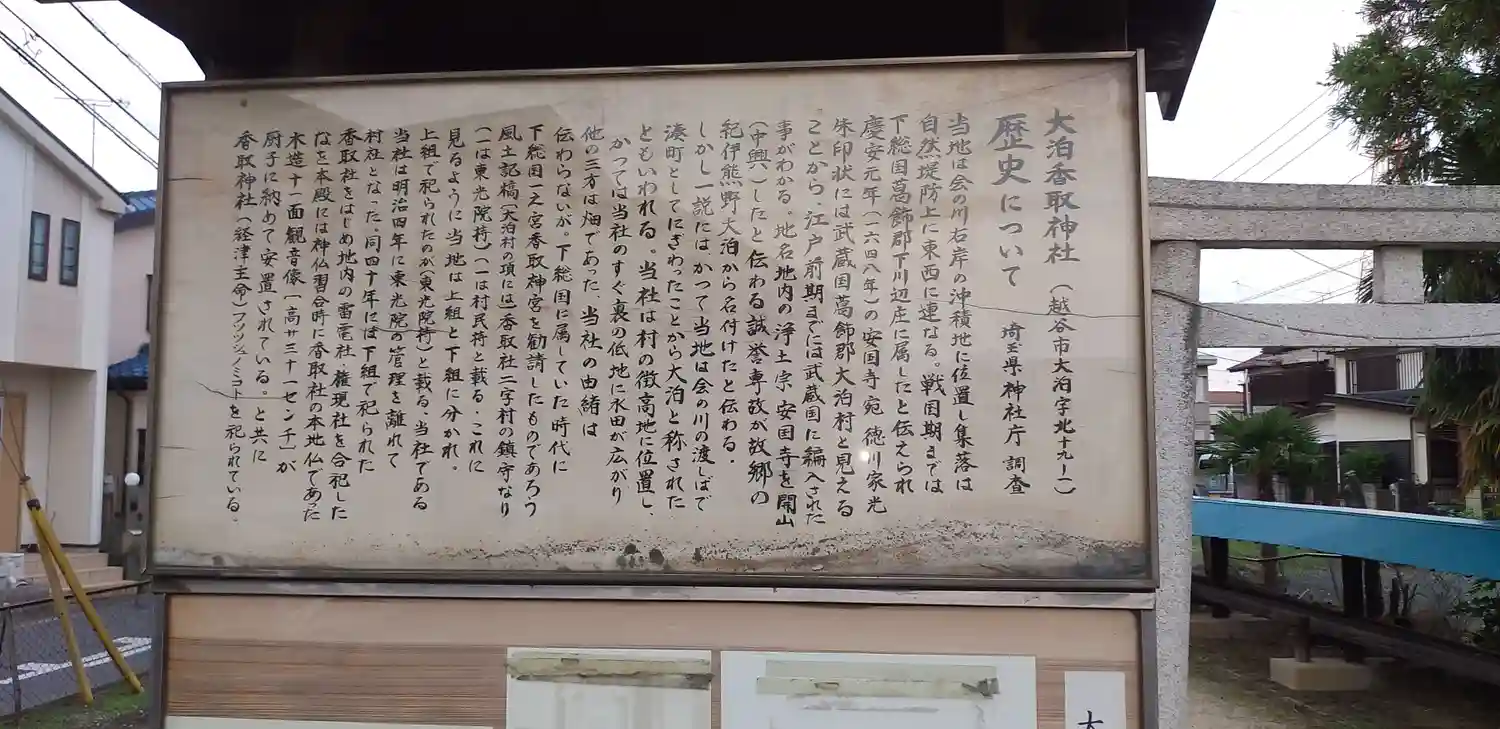 大泊香取神社（越谷市大泊字北十九ー一）
歴史について　埼玉県神社庁 調査
当地は会の川右岸の沖積地に位置し集落は
自然堤防上に東西に連なる。戦国期までは
下総国葛飾郡下川辺庄に属したと伝えられ
慶安元年（一六四八年）の安国寺宛 徳川家光
朱印状には武蔵国葛飾郡大泊村と見える
ことから、江戸前期までには武蔵国に編入された
事がわかる。地名地内の浄土宗 安国寺を開山
（中興）したと伝わる誠誉専故が故郷の
紀伊熊野大泊から名付けたと伝わる.
しかし一説には、かつて当地は会の川の渡しばで
湊町としてにぎわったことから大泊と称された
ともいわれる。当社は村の微高地に位置し、
かつては当社のすぐ裏の低地に水田が広がり
他の三方は畑であった、当社の由緒は
伝わらないが。下総国に属していた時代に
下総国一之宮香取神宮を勧請したものであろう
風土記稿〔大泊村の項には〕香取社二宇村の鎮守なり
（一は東光院持）（一は村民持と載る.これに
見るように当地は上組と下組に分かれ.
上組で祀られたのが（東光院持）と載る.当社である
当社は明治四年に東光院の管理を離れて
村社となった.同四十年には下組で祀られた
香取社をはじめ地内の雷電社.権現社を合祀した
なを本殿には神仏習合時に香取社の本地仏であった
木造十一面観音像「高サ三十一センチ」が
厨子に納めて安置されている。と共に
香取神社（経津主命）フツヌシノミコトを祀られている.
大